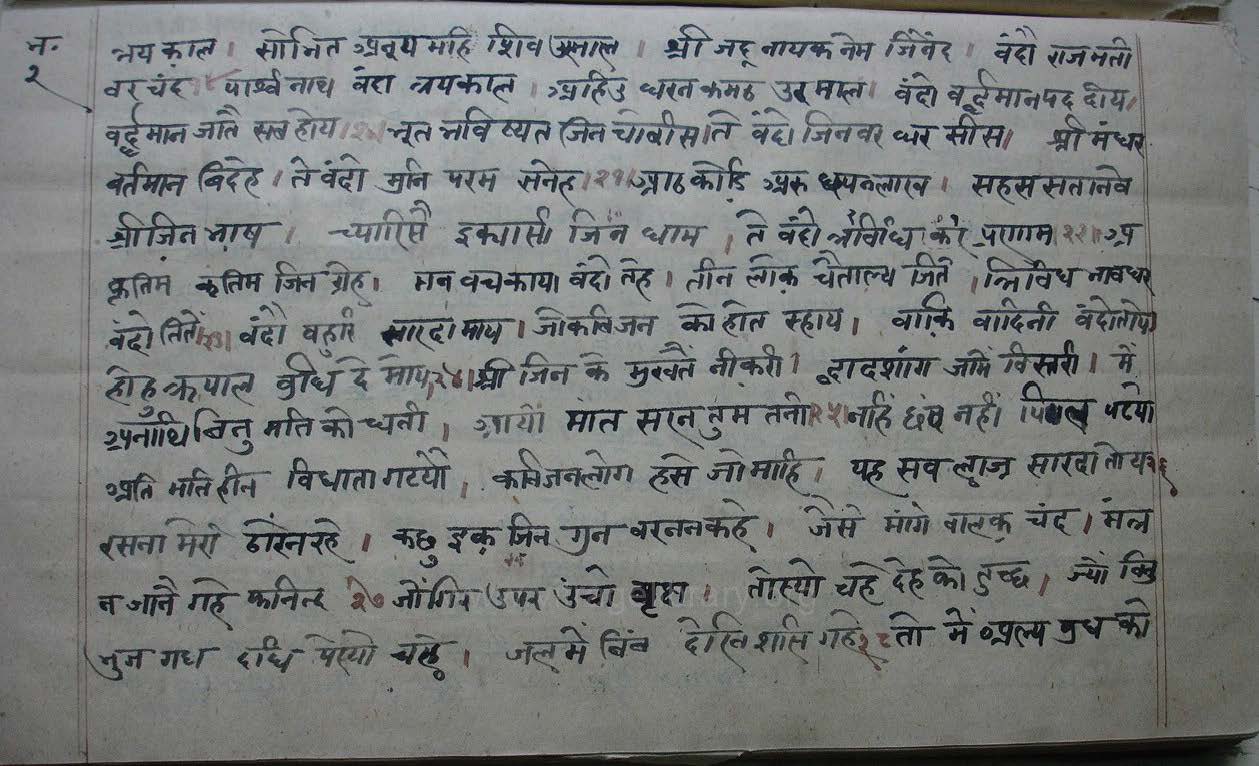 न॰
२
त्रय काल । सोभित अनूप महि शिव माल । श्री जदू नायक नेम जिनेंद । वंदौ राजमती
वर चंद पार्श्वनाथ वंदा त्रयकाल । अहि धरन कमठ उर माल । वंदो वर्द्धमान पद दोय ।
वर्द्धमान जातै सब होय । २० । भूत भविष्यत जिन चोबीस । ते वंदो जिनवर धर सीस । श्री मंधर
वर्तमान बिदेह । ते वंदो मुनि परम सनेह । २१ । आठ कोडि अरु छपनलाख । सहस सतानवे
श्री जिन भाष । च्यारिसै इक्यासी जिन धाम । ते वंदो त्रिविधि करे परणाम २२ । अ
कृतिम कृतिम जिन ग्रेह । मन वच काया वंदो तेह । तीन लोक चैताल्य जिते । त्रिविध भावधर
वंदो तिते । वंदौ बहुरि सारदा माय । जो कविजन को होत स्हाय । वाकि वादिनी वंदो तोय
होहु क्रपाल बुधि दे मोय २४ । श्री जिन के मुखतै नीकरी । द्वादशांग जामे विस्तरी । में
अनाथि बिनु मति को धनी । आयो मात सरन तुम तनी २५ नहिं छंद नहीं पिंगल पढ्यो
अति मति हीन विधाता गढ्यौ । कविजन लोग हसे जो माहि । यह सव लाज सारदा तोय २६
रसना मेरी ठोरि न रहे । कछु इक जिन गुन वरनन कहे । जैसे मांगे वालक चंद । मंत्र
न जानै गहे फनिन्द २७ जों गिर उपर उंचो वृक्ष । तोस्यो चहे देह को तुच्छ । ज्यों बिनु
भुज गध दधि पेस्यो चहे । जल में बिंब देखि शशि गहे २८ तो में अल्प बुध को